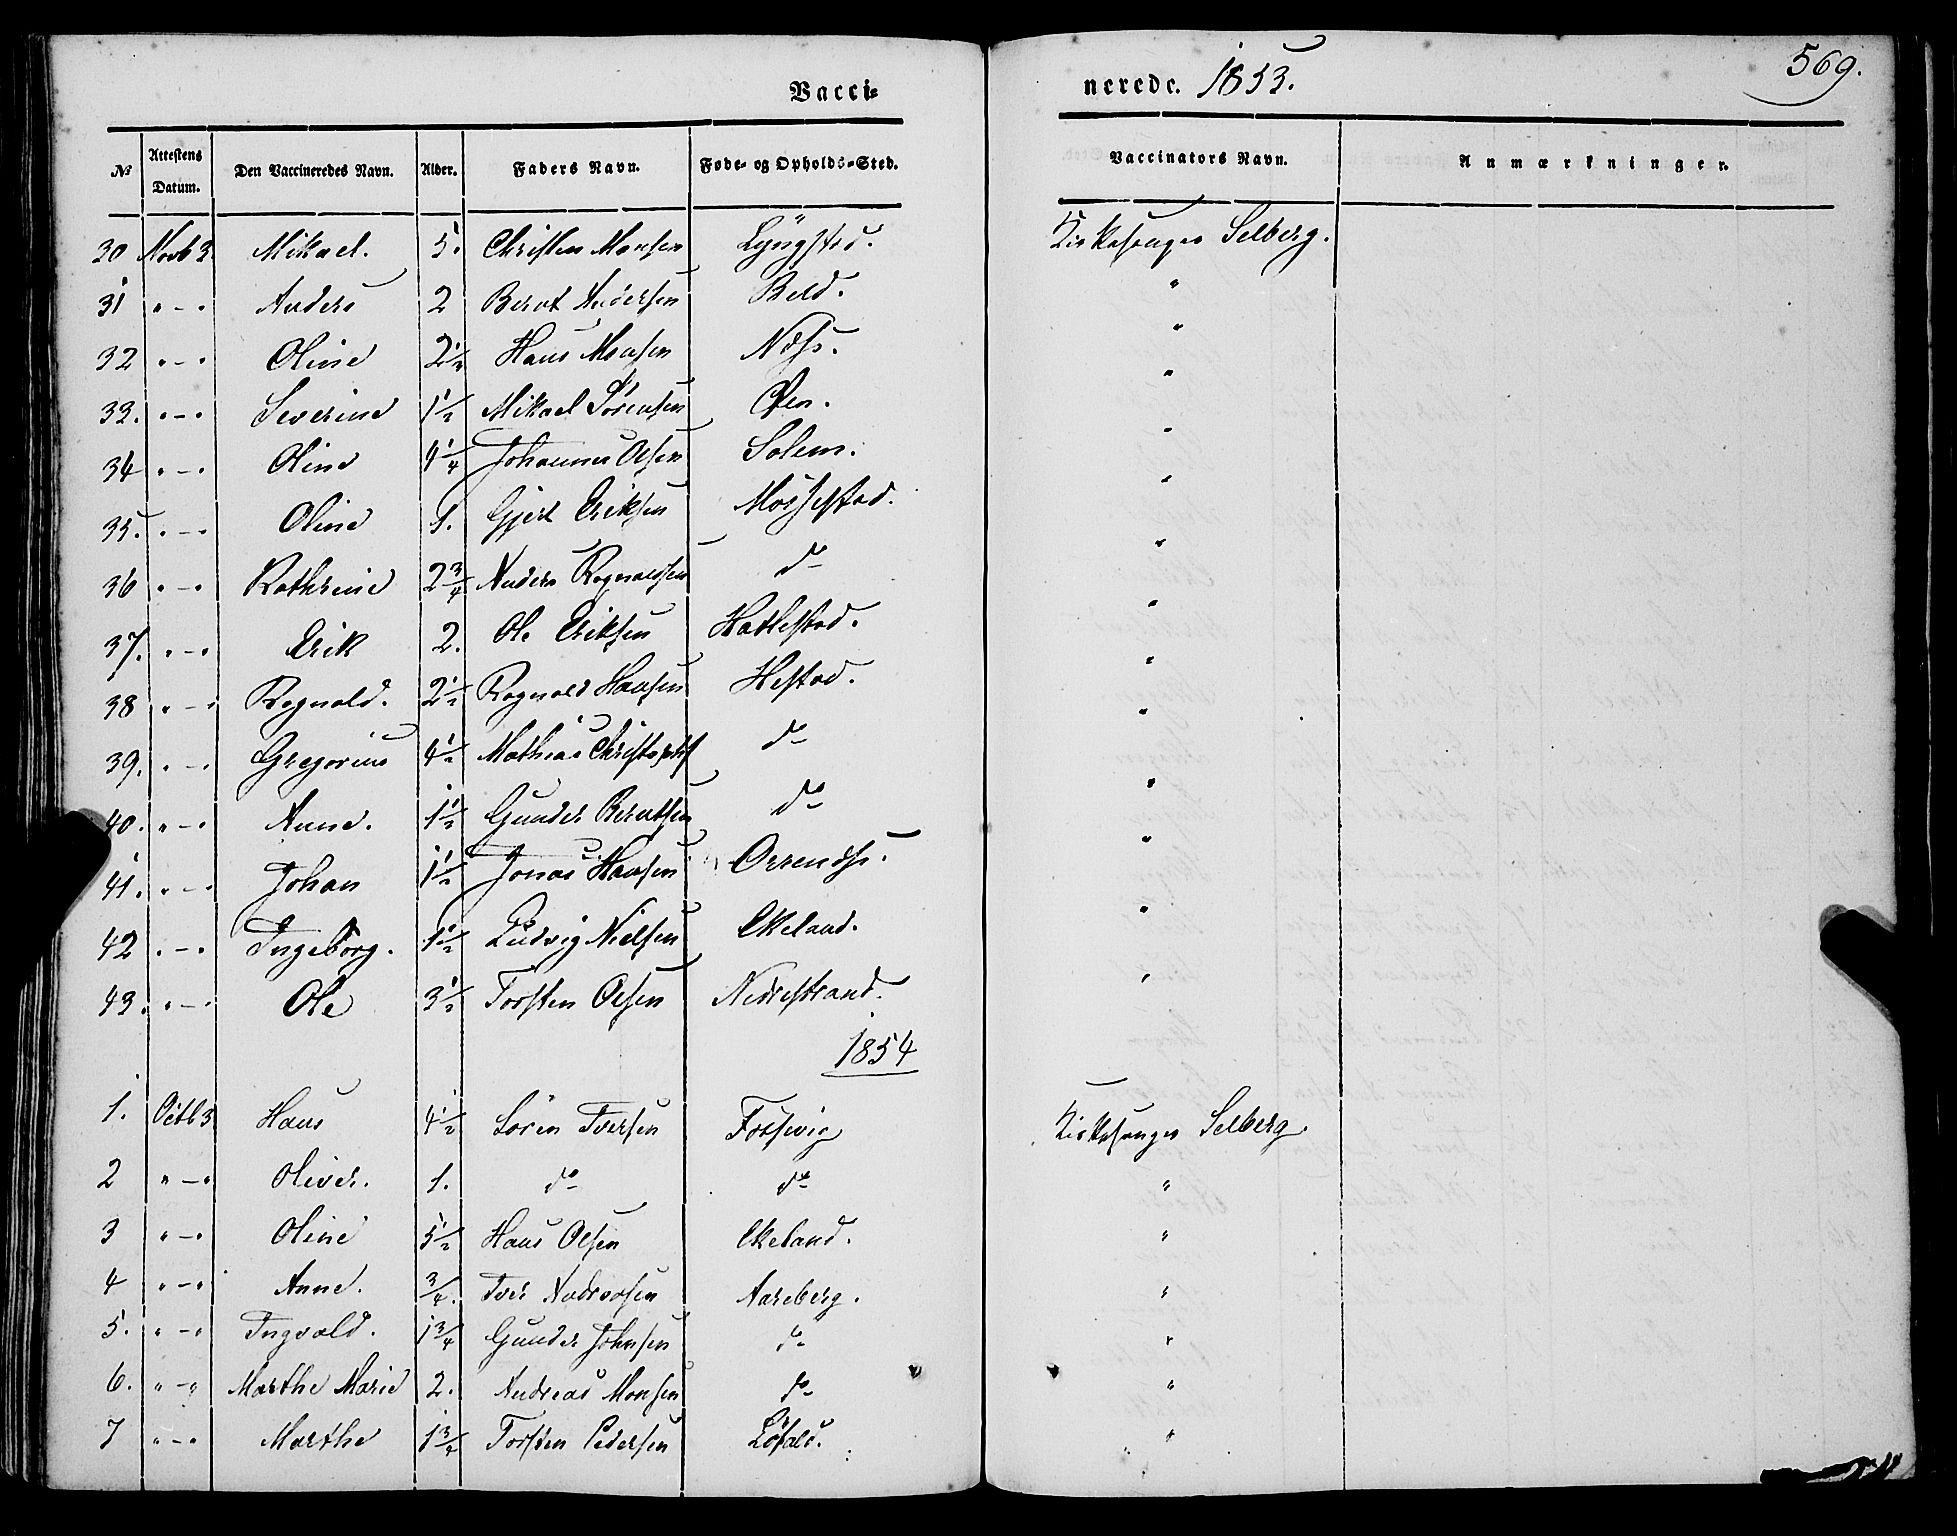 Vacci= nerede. 1853. 569.
№ Attestens Datum. Den Vaccineredes Navn. Alder. Faders Navn. Føde- og Opholds-Sted. Vaccinators Navn. Anmærkninger.
30 Novb 3. Mikael. 5. Christen Monsen Lyngstad. Kirkesanger Selberg.
31 " - " Anders 2 Berat Andersen Beld. "
32 " - " Oline 2 1/2 Hans Monsen Næss. "
33. " - " Severine 1 1/2 Mikael Sørensen Øen. "
34 " - " Oline 4 1/4 Johannes Olsen Solem. "
35. " - " Oline 1. Gjert Eriksen "
36 " - " Kathrine 2 3/4 Anders Rognaldsen do "
37. " - " Erik 2. Ole Eriksen Hatlestad. "
38 " - " Rognald. 2 1/2 Rognald Hansen Hestad. "
39. " - " Gregorius 4 1/2 Mathias do "
40. " - " Anne. 1 1/2 Gunder Berntsen do "
41. " - " Johan 1 1/2 Jonas Hansen "
42 " - " Ingeborg. 1 1/2 Ludvig Nielsen Ekeland. "
43. " - " Ole 3 1/2 Torsten Olsen Nedrestrand. "
1854
1. Octb 3 Hans 4 1/2 Søren Iversen Fossevig Kirkesanger Selberg.
2 " - " Oliver. 1. do do "
3 " - " Oline 5 1/2 Hans Olsen Ekeland. "
4 " - " Anne. 3/4. Iver Andreasen Aareberg. "
5. " - " Ingvald. 1 3/4 Gunder Johnsen do "
6. " - " Marthe Marie 2. Andreas Monsen do "
7 " - " Marthe Torsten Pedersen "